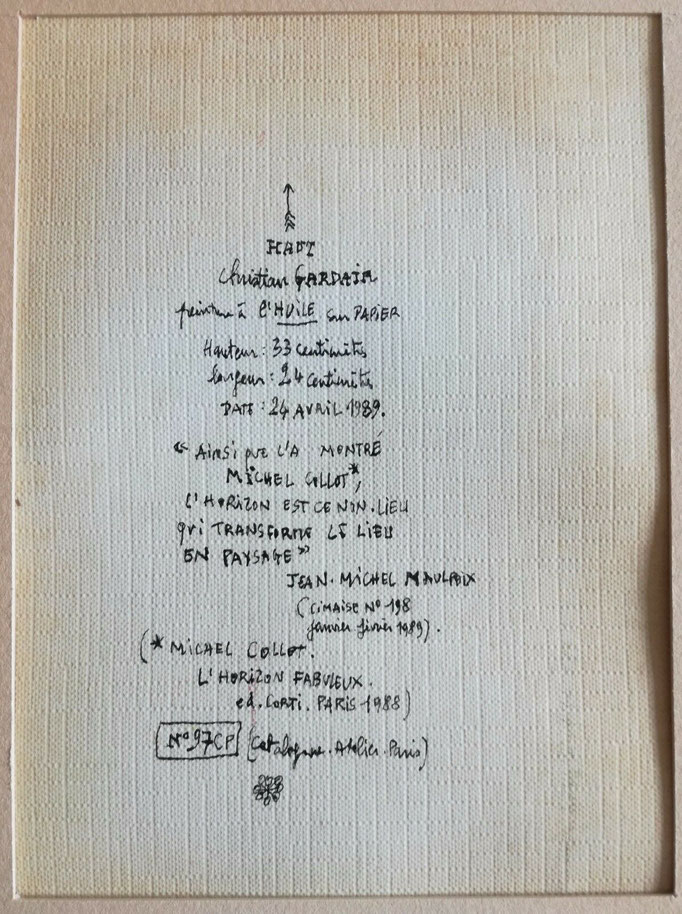 HAUT
Christian GARDAIR
peinture à l'HUILE sur PAPIER
Hauteur : 33 centimètres
largeur : 24 centimètres
DATE : 24 AVRIL 1989.
« AINSI QUE L'A MONTRÉ
MICHEL COLLOT*,
L'HORIZON EST CE NON.LIEU
QUI TRANSFORME LE LIEU
EN PAYSAGE »
JEAN.MICHEL MAULPOIX
(CIMAISE N° 198
janvier février 1989).
(* MICHEL COLLOT.
L'HORIZON FABULEUX.
ed. CORTI. PARIS 1988)
N°97CP (Catalogue.Atelier.Paris)